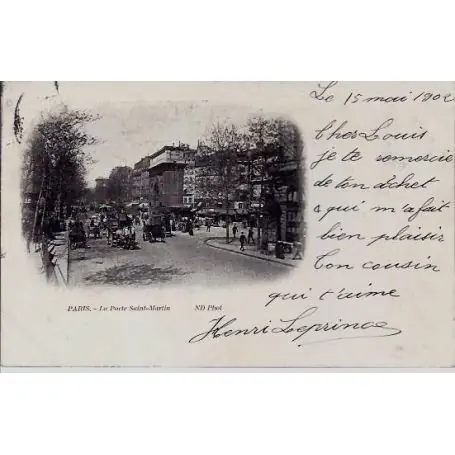 Le 15 mai 1902
Cher Louis
je te remercie
de ton achet
qui m'a fait
bien plaisir
Ton cousin
qui t'aime
Henri Leprince
PARIS. - La Porte Saint-Martin
ND Phot